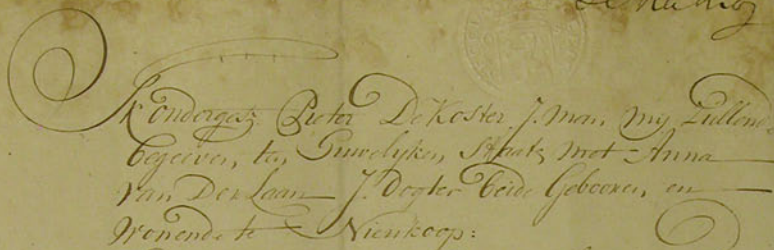 Ik ondergesz: Pieter De Koster J. man, my Zullende
begeeven, ten Huwelyken Staat, met Anna
van Der Laan J. Dogter beide Gebooren, en
Wonende te Nieukoop: